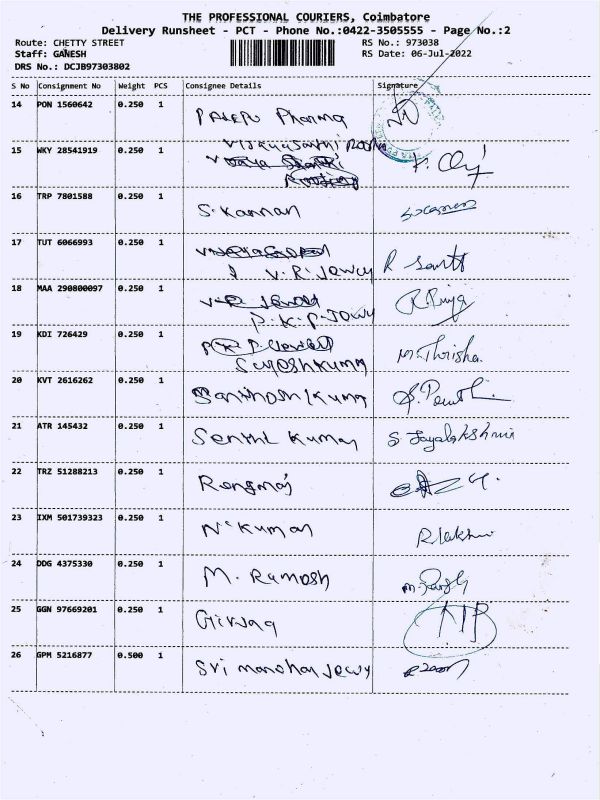 THE PROFESSIONAL COURIERS, Coimbatore
Delivery Runsheet - PCT - Phone No.:0422-3505555 - Page No.:2
Route: CHETTY STREET RS No.: 973038
Staff: GANESH RS Date: 06-Jul-2022
DRS No.: DCJB97303802
S No Consignment No Weight PCS Consignee Details Signature
14 PON 1560642 0.250 1 Pharma
15 WKY 28541919 0.250 1
16 TRP 7801588 0.250 1 S. Kannan
17 TUT 6066993 0.250 1 V. R. Jewwy R
18 MAA 290800097 0.250 1 P. K. P. Jowwy R. Priya
19 KDI 726429 0.250 1 Sureshkumar M. Thrisha.
20 KVT 2616262 0.250 1 Santhosh Kumar
21 ATR 145432 0.250 1 Senthil Kumar S Jayalakshmi
22 TRZ 51288213 0.250 1
23 IXM 501739323 0.250 1 N. Kumar R lakshmi
24 DDG 4375330 0.250 1 M. Ramesh
25 GGN 97669201 0.250 1
26 GPM 5216877 0.500 1 Sri manohar Jewwy